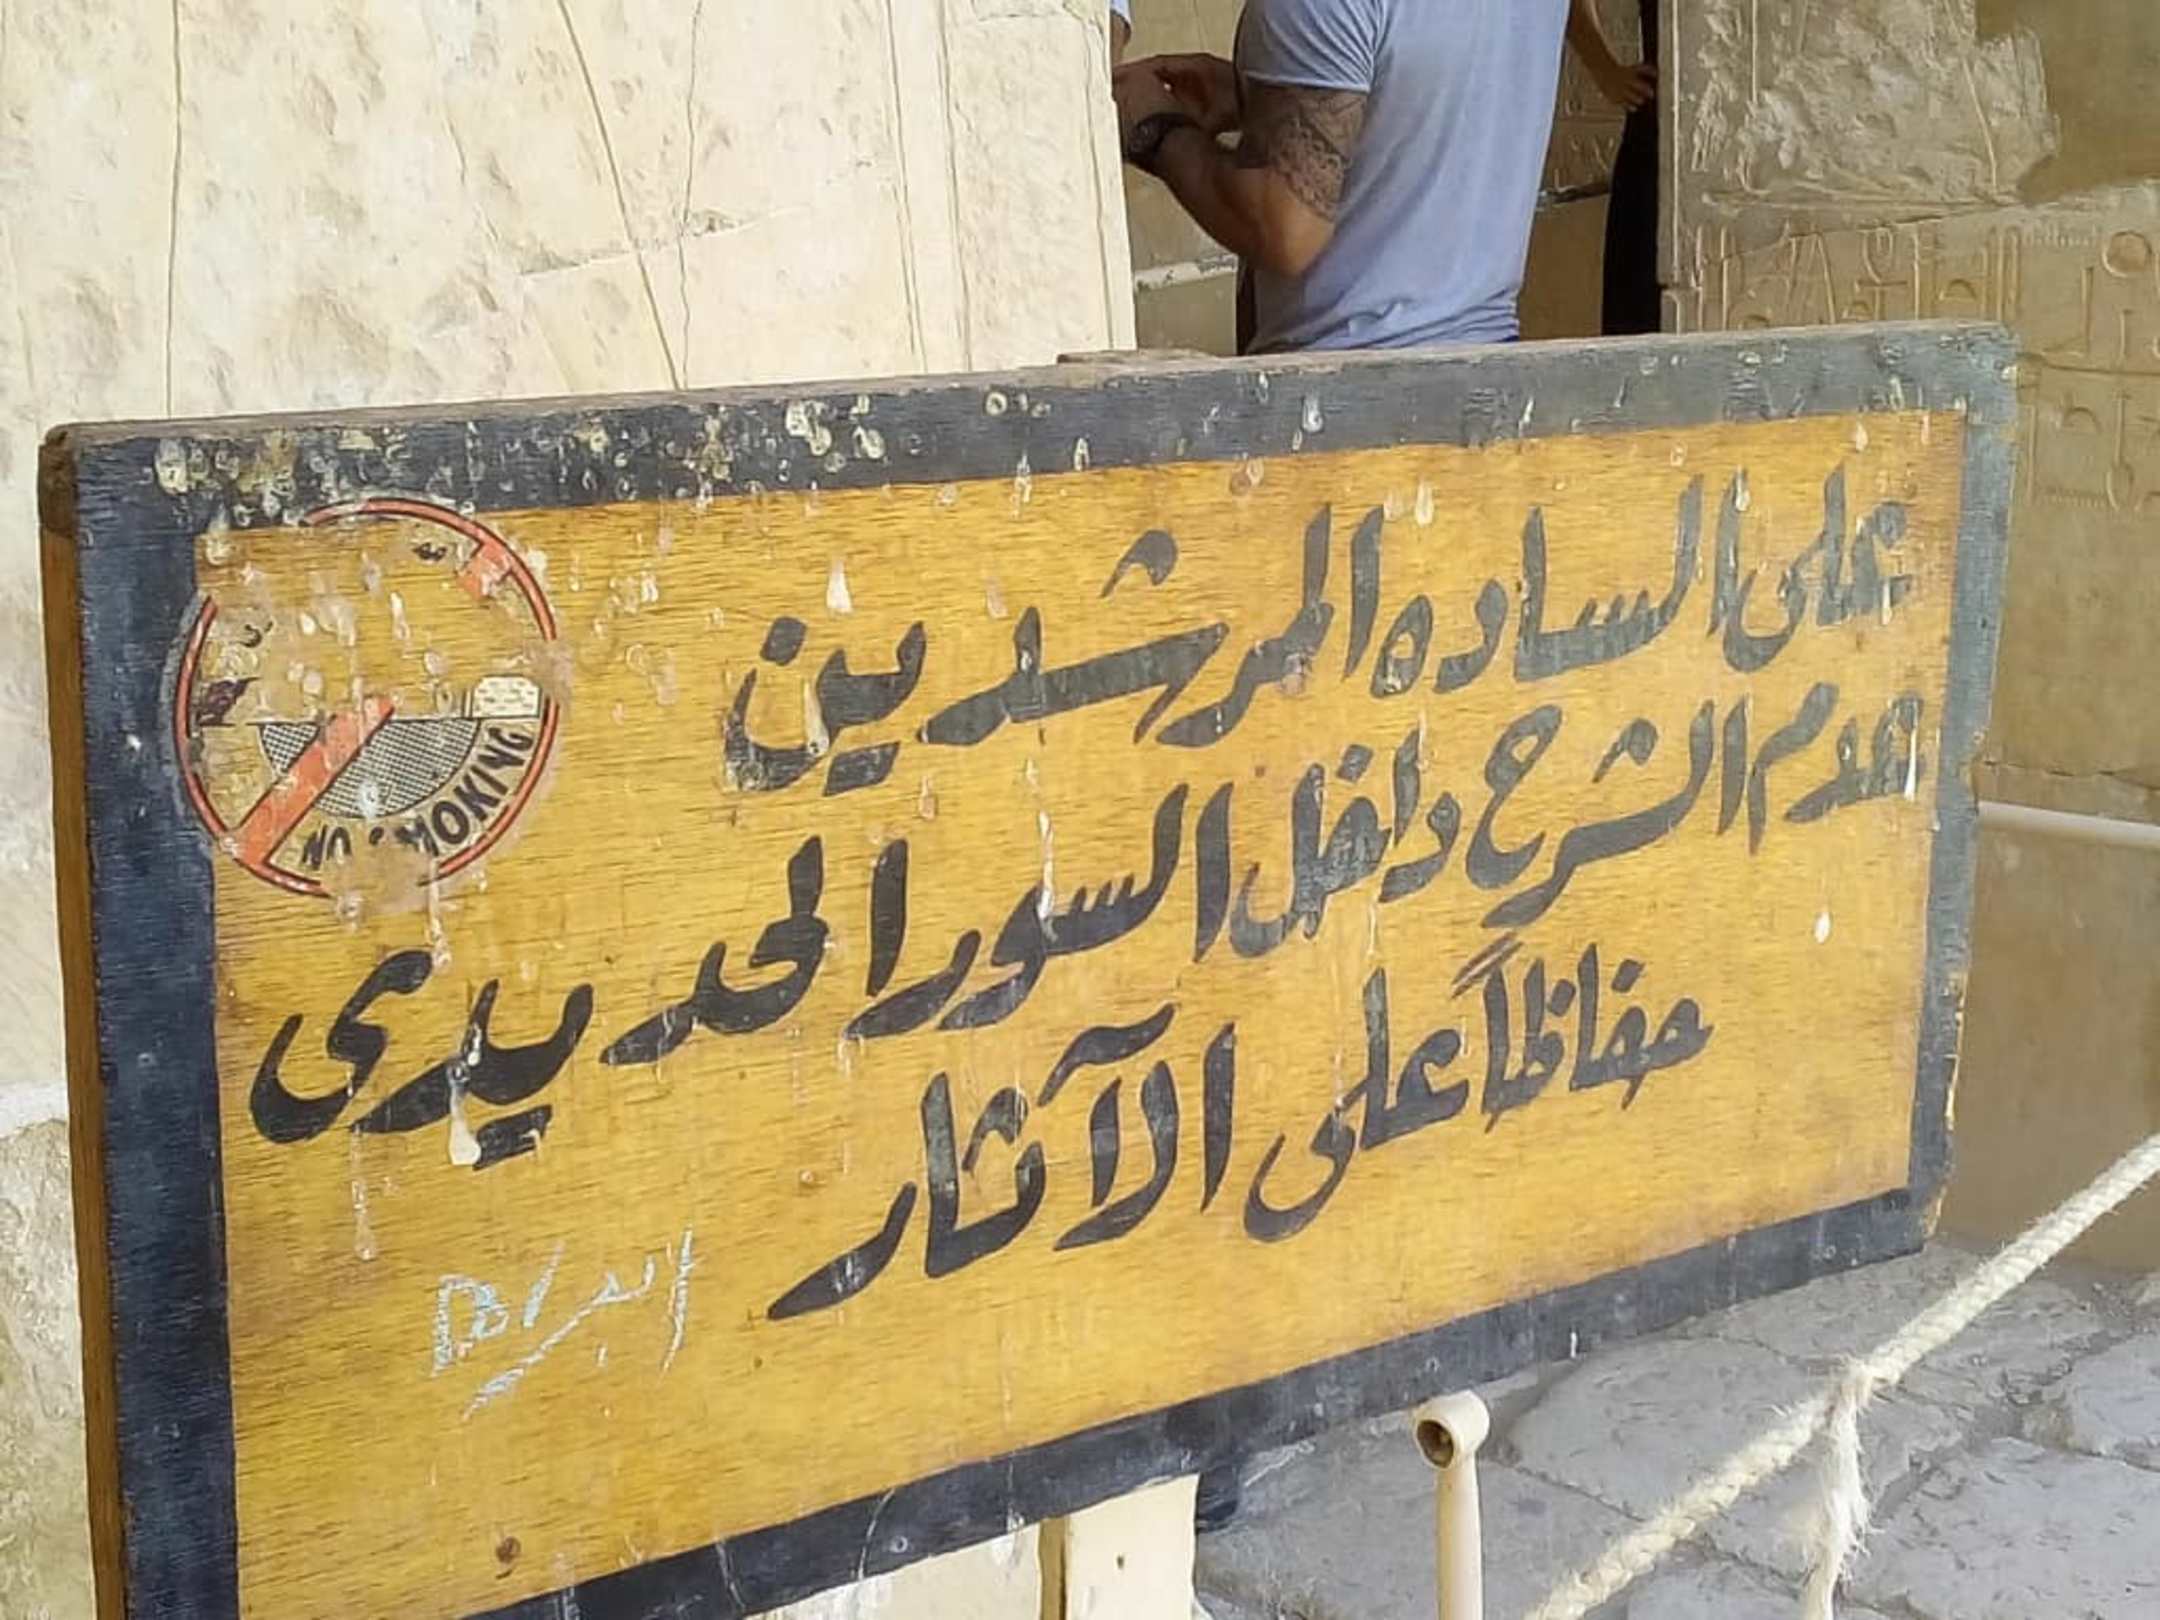 على الساده المرشدين
عدم الشرح داخل السور الحديدى
حفاظاً على الآثار
NO SMOKING